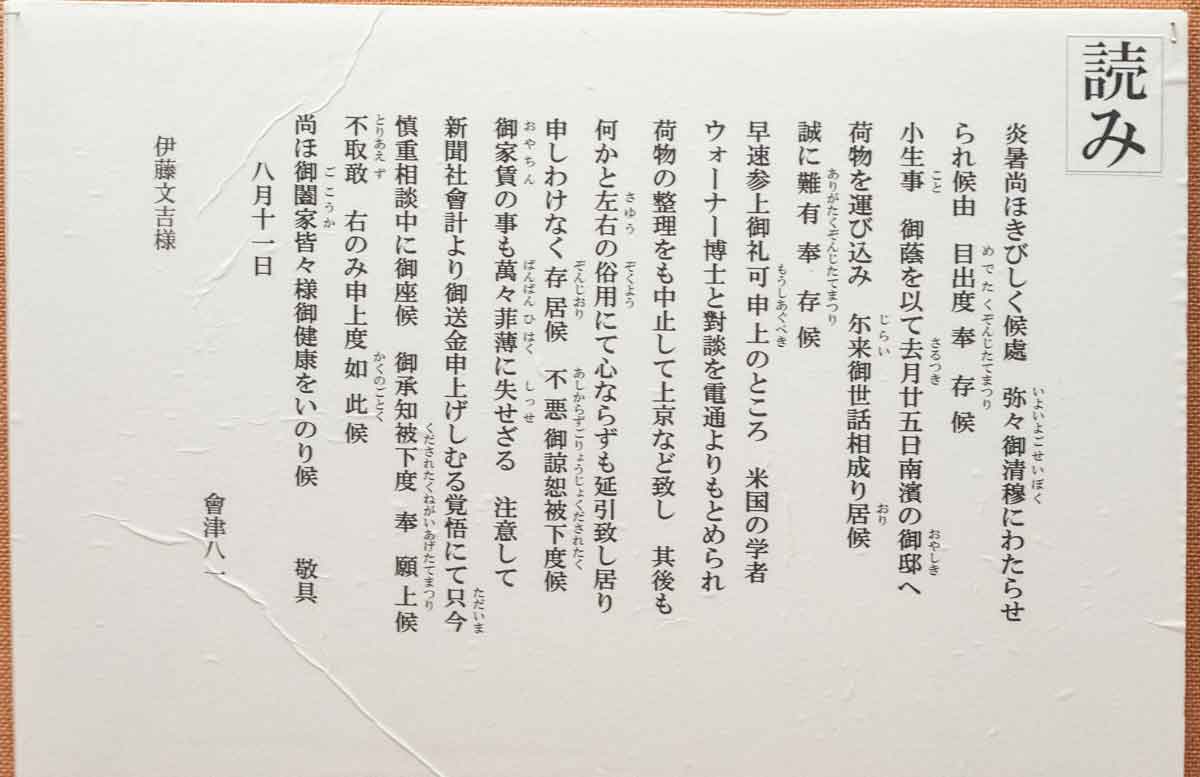 読み
炎暑尚ほきびしく候處　弥々御清穆にわたらせ
られ候由　目出度奉存候
小生事　御蔭を以て去月廿五日南濱の御邸へ
荷物を運び込み　尓来御世話相成り居候
誠に難有奉存候
早速参上御礼可申上のところ　米国の学者
ウォーナー博士と對談を電通よりもとめられ
荷物の整理をも中止して上京など致し　其後も
何かと左右の俗用にて心ならずも延引致し居り
申しわけなく存居候　不悪御諒恕被下度候
御家賃の事も萬々菲薄に失せざる　注意して
新聞社會計より御送金申上げしむる覚悟にて只今
慎重相談中に御座候　御承知被下度奉願上候
不取敢　右のみ申上度如此候
尚ほ御闔家皆々様御健康をいのり候　敬具
八月十一日
會津八一
伊藤文吉様